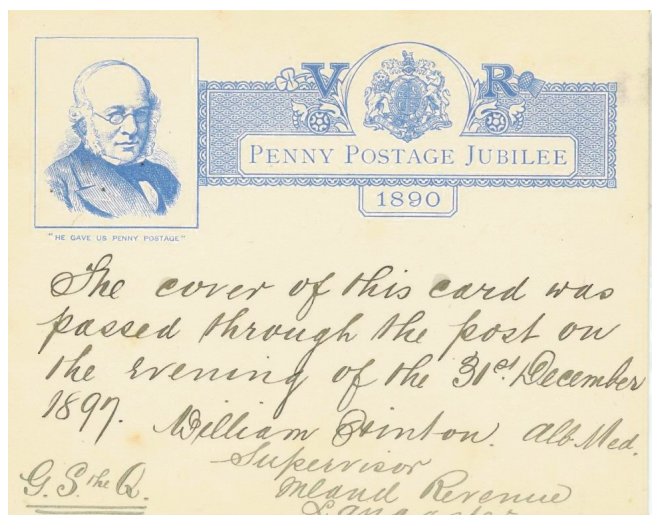 V R
PENNY POSTAGE JUBILEE
1890
"HE GAVE US PENNY POSTAGE"
The cover of this card was
passed through the post on
the evening of the 31st December
1897. William Hinton. Alb. Med.
Supervisor
G. S. the Q. Inland Revenue
Lancaster